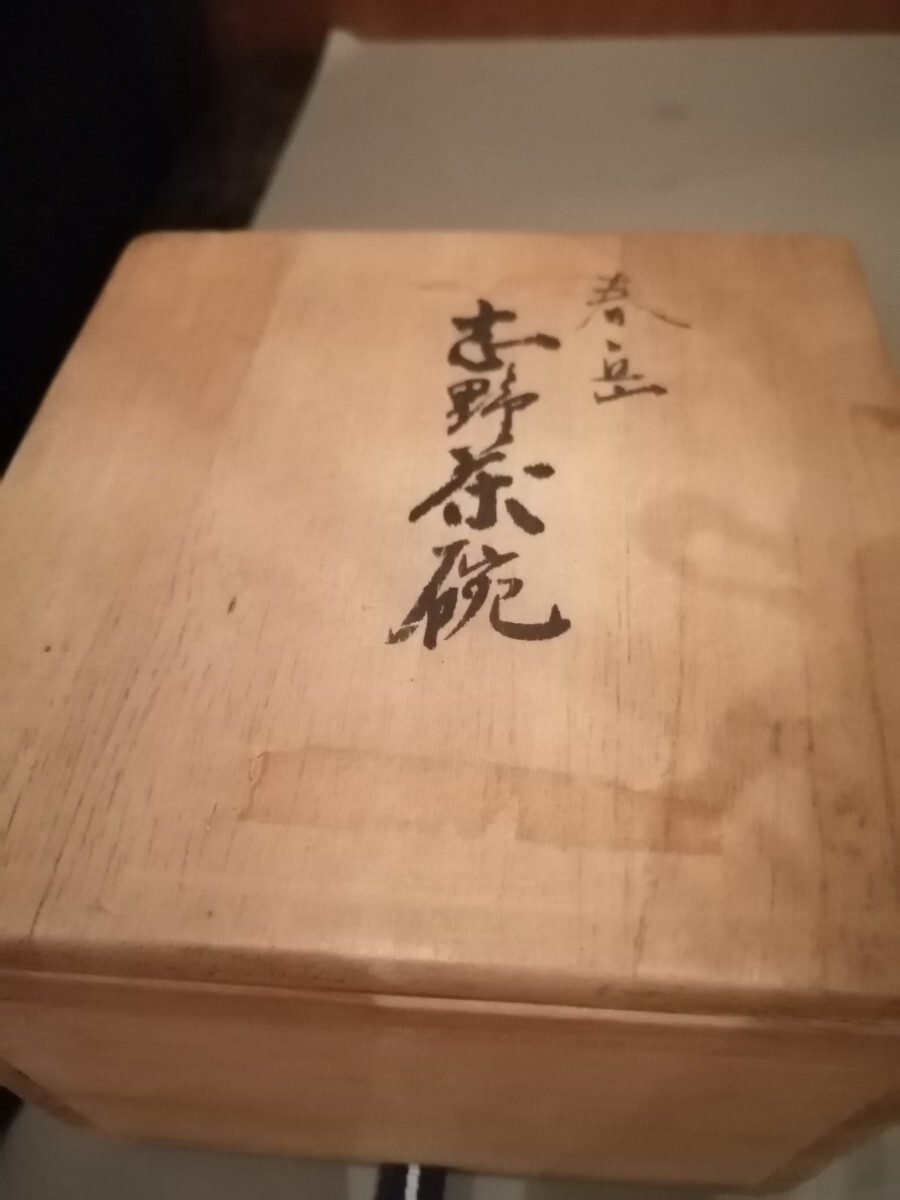 春岳
志野茶碗